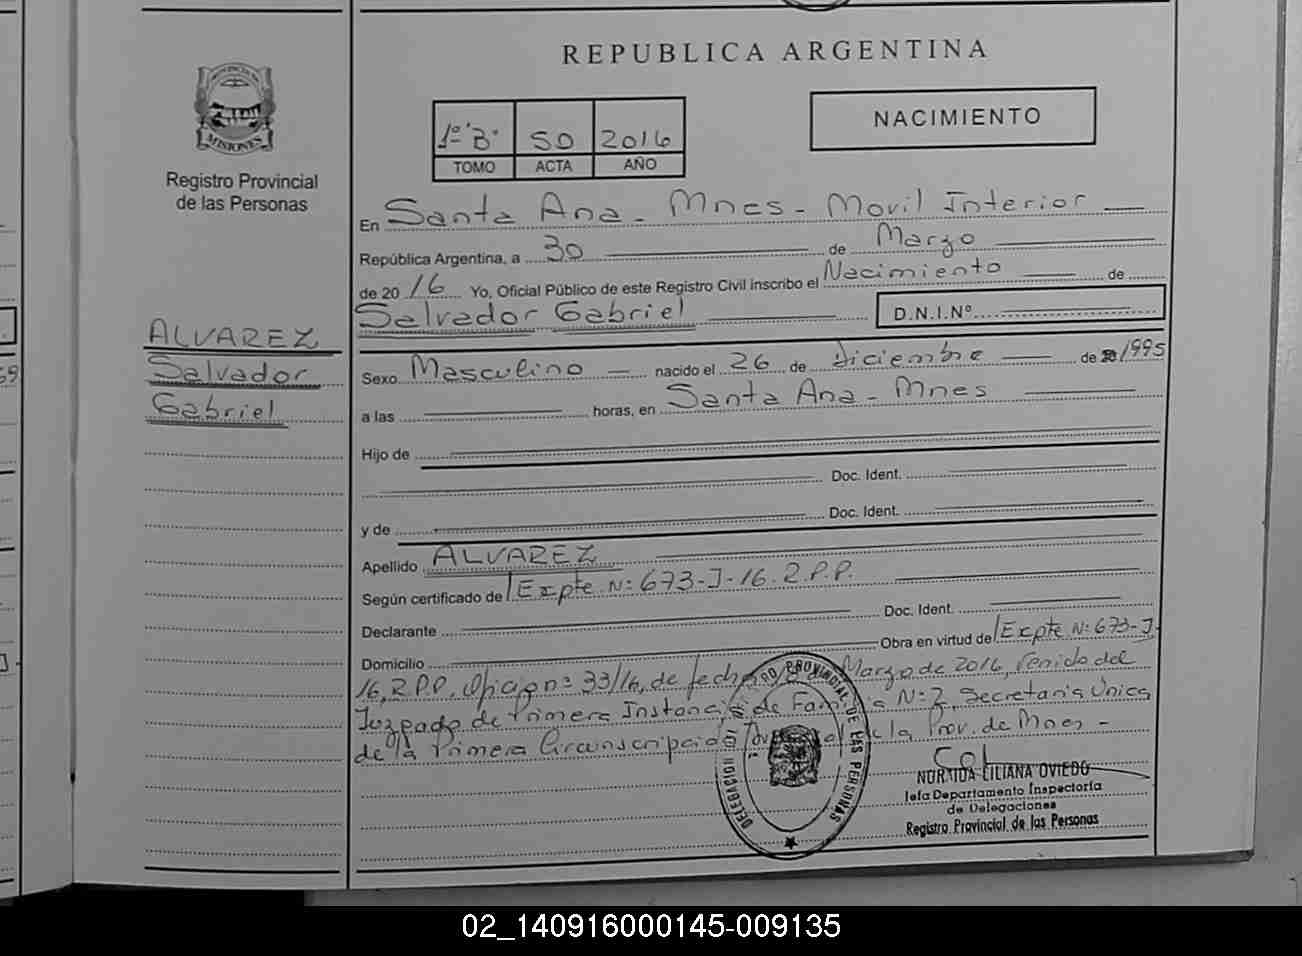 REPUBLICA ARGENTINA
PROVINCIA DE
MISIONES
Registro Provincial
de las Personas
1º "B" 50 2016
TOMO ACTA AÑO
NACIMIENTO
En Santa Ana - Mnes - Movil Interior
República Argentina, a 30 de Marzo
de 2016 Yo, Oficial Público de este Registro Civil inscribo el Nacimiento de
Salvador Gabriel D.N.I.Nº
ALVAREZ
Salvador
Gabriel
Sexo Masculino nacido el 26 de diciembre de 1995
a las horas, en Santa Ana - Mnes
Hijo de
Doc. Ident.
y de Doc. Ident.
Apellido ALVAREZ
Según certificado de Expte. Nº 673-J-16. R.P.P.
Declarante Doc. Ident.
Domicilio Obra en virtud de Expte Nº 673-J-
16, R.P.P. Oficio nº 33/16, de fecha Marzo de 2016, venido del
Juzgado de Primera Instancia de Familia Nº 2, Secretaria Única
de la Primera Circunscripción de la Prov. de Mnes -
DELEGACION REGISTRO PROVINCIAL DE LAS PERSONAS
LILIANA OVIEDO
Jefa Departamento Inspectoría
de Delegaciones
Registro Provincial de las Personas
02_140916000145-009135